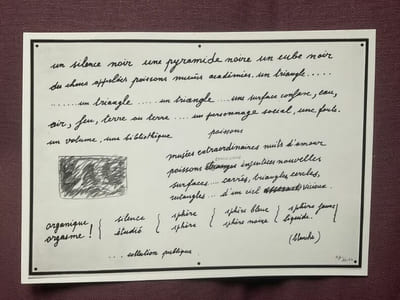 un silence noir une pyramide noire un cube noir
des choses appelées poissons musées académies. un triangle.....
....... un triangle ..... un triangle .... une surface confuse, eau,
air, feu, terre ou terre .... un personnage social, une foule.
un volume, une bibliothèque poissons
musées extraordinaires nuits d'amour
poissons inventives nouvelles
surfaces.... carrés, triangles, cercles,
rectangles ... d'un ciel vicieux.
organique
orgasme ! { silence { sphère { sphère bleue { sphère jaune }
étudié sphère sphère noire liquide.
.... collection publique (blanche)